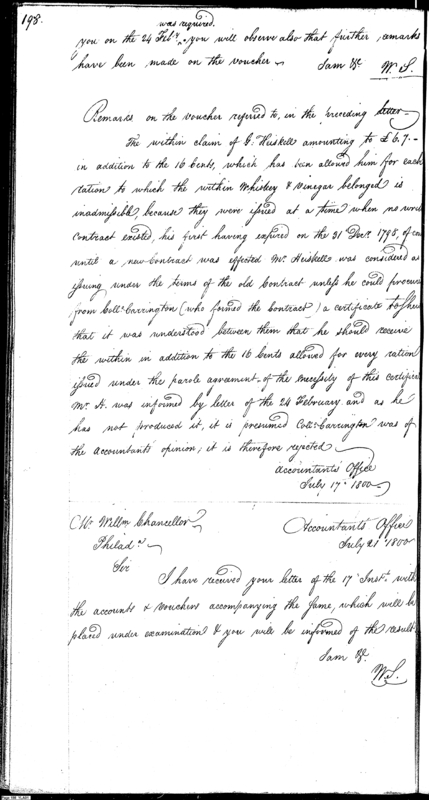 198.
was required.
you on the 24 Feby. you will observe also that further remarks
have been made on the voucher
I am &c. W. S.
Remarks on the voucher referred to, in the preceding letter
The within claim of G. Huskell amounting to £6.7.-
in addition to the 16 Cents, which has been allowed him for each
ration to which the within Whiskey & Vinegar belonged is
inadmissible, because they were issued at a time when no
contract existed, his first having expired on the 31 Decr. 1798,
until a new Contract was effected Mr. Heiskell was considered as
issuing under the terms of the old Contract unless he could procure
from Collo. Carrington (who formed the Contract) a certificate to shew
that it was understood between them that he should receive
the within in addition to the 16 Cents allowed for every ration
issued under the parole agreement, of the necessity of this certificate
Mr. H. was informed by letter of the 24 February and as he
has not produced it, it is presumed Colo. Carrington was of
the accountants opinion, it is therefore rejected
Accountants Office
July 17th. 1800
Mr. Willm Chancellor
Philada.
Accountants Office
July 21st 1800
Sir
I have received your letter of the 17 Inst. with
the accounts & vouchers accompanying the same, which will be
placed under examination & you will be informed of the result.
I am &c.
W. S.